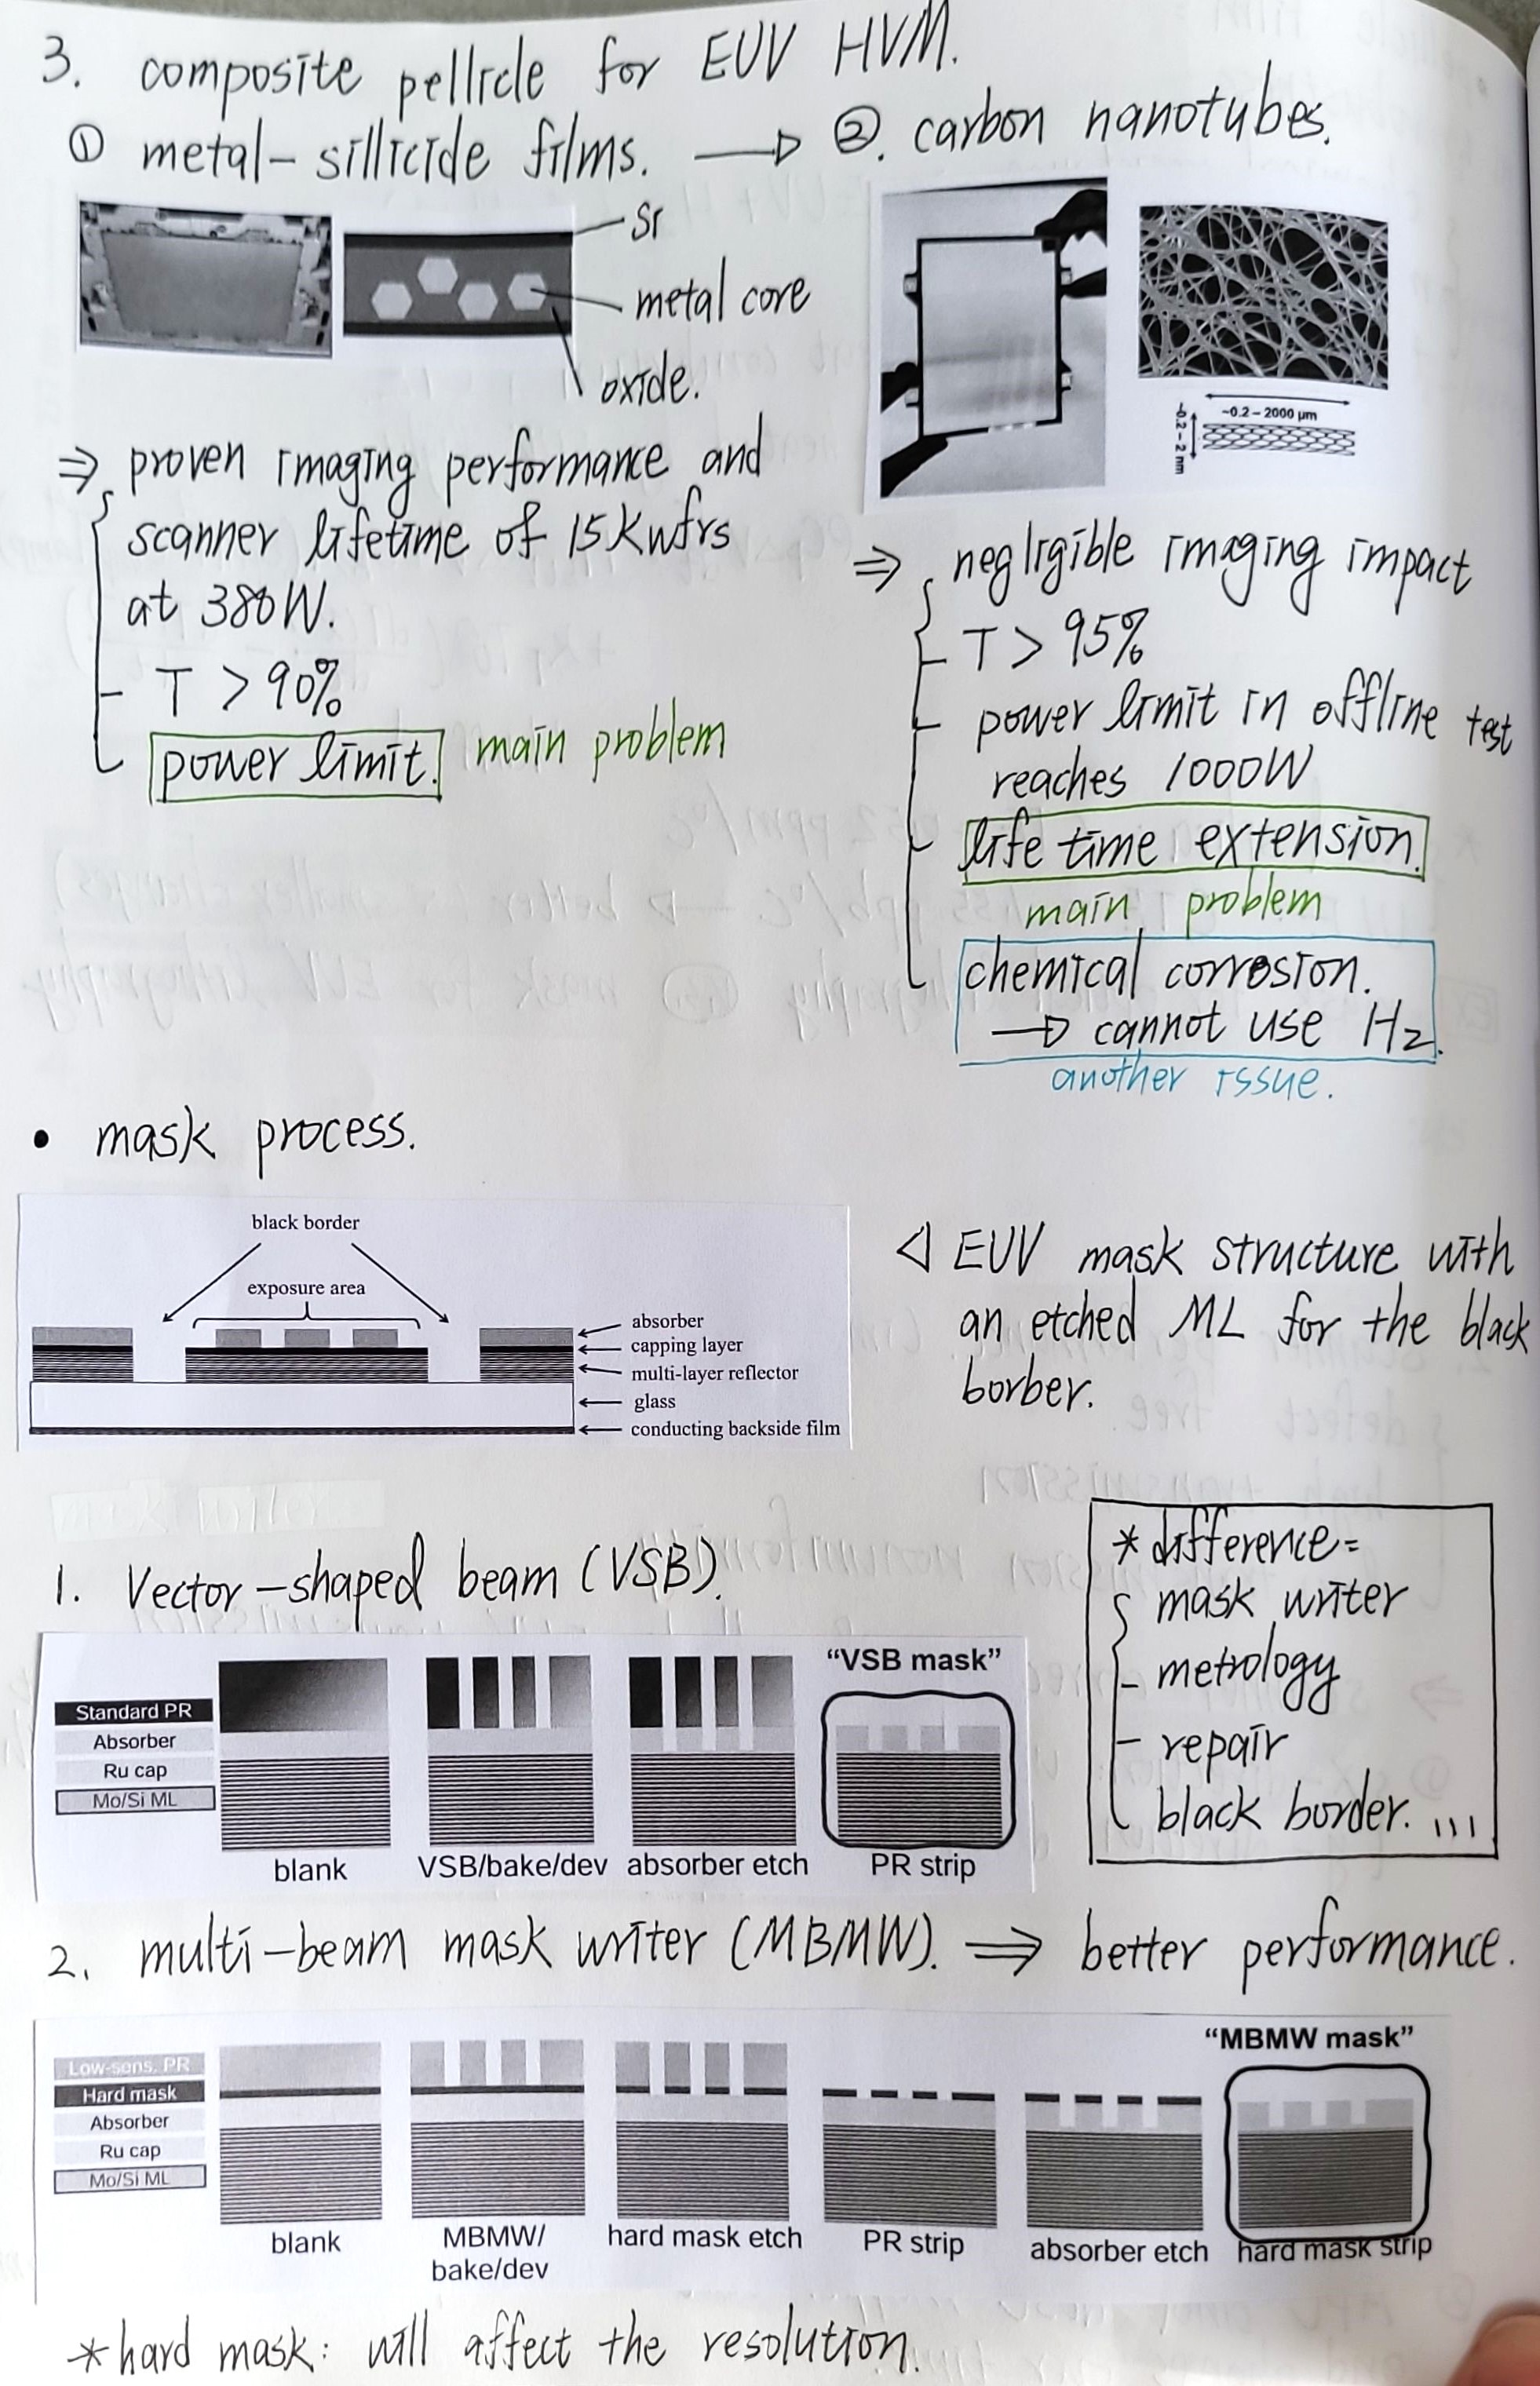 3. composite pellicle for EUV HVM.
① metal-sillicide films. → ②. carbon nanotubes.
Si
metal core
oxide.
~0.2 – 2000 μm
~0.2 – 2 nm
⇒ proven imaging performance and
scanner lifetime of 15K wfrs
at 380W.
- T > 90%
power limit. main problem
⇒ negligible imaging impact
- T > 95%
- power limit in offline test
reaches 1000W
life time extension.
main problem
chemical corrosion.
→ cannot use H2.
another issue.
• mask process.
black border
exposure area
absorber
capping layer
multi-layer reflector
glass
conducting backside film
◁ EUV mask structure with
an etched ML for the black
borber.
1. Vector-shaped beam (VSB).
"VSB mask"
Standard PR
Absorber
Ru cap
Mo/Si ML
blank VSB/bake/dev absorber etch PR strip
* difference=
mask writer
- metrology
- repair
black border. ...
2. multi-beam mask writer (MBMW). ⇒ better performance.
"MBMW mask"
Low-sens. PR
Hard mask
Absorber
Ru cap
Mo/Si ML
blank MBMW/ hard mask etch PR strip absorber etch hard mask strip
bake/dev
* hard mask: will affect the resolution.